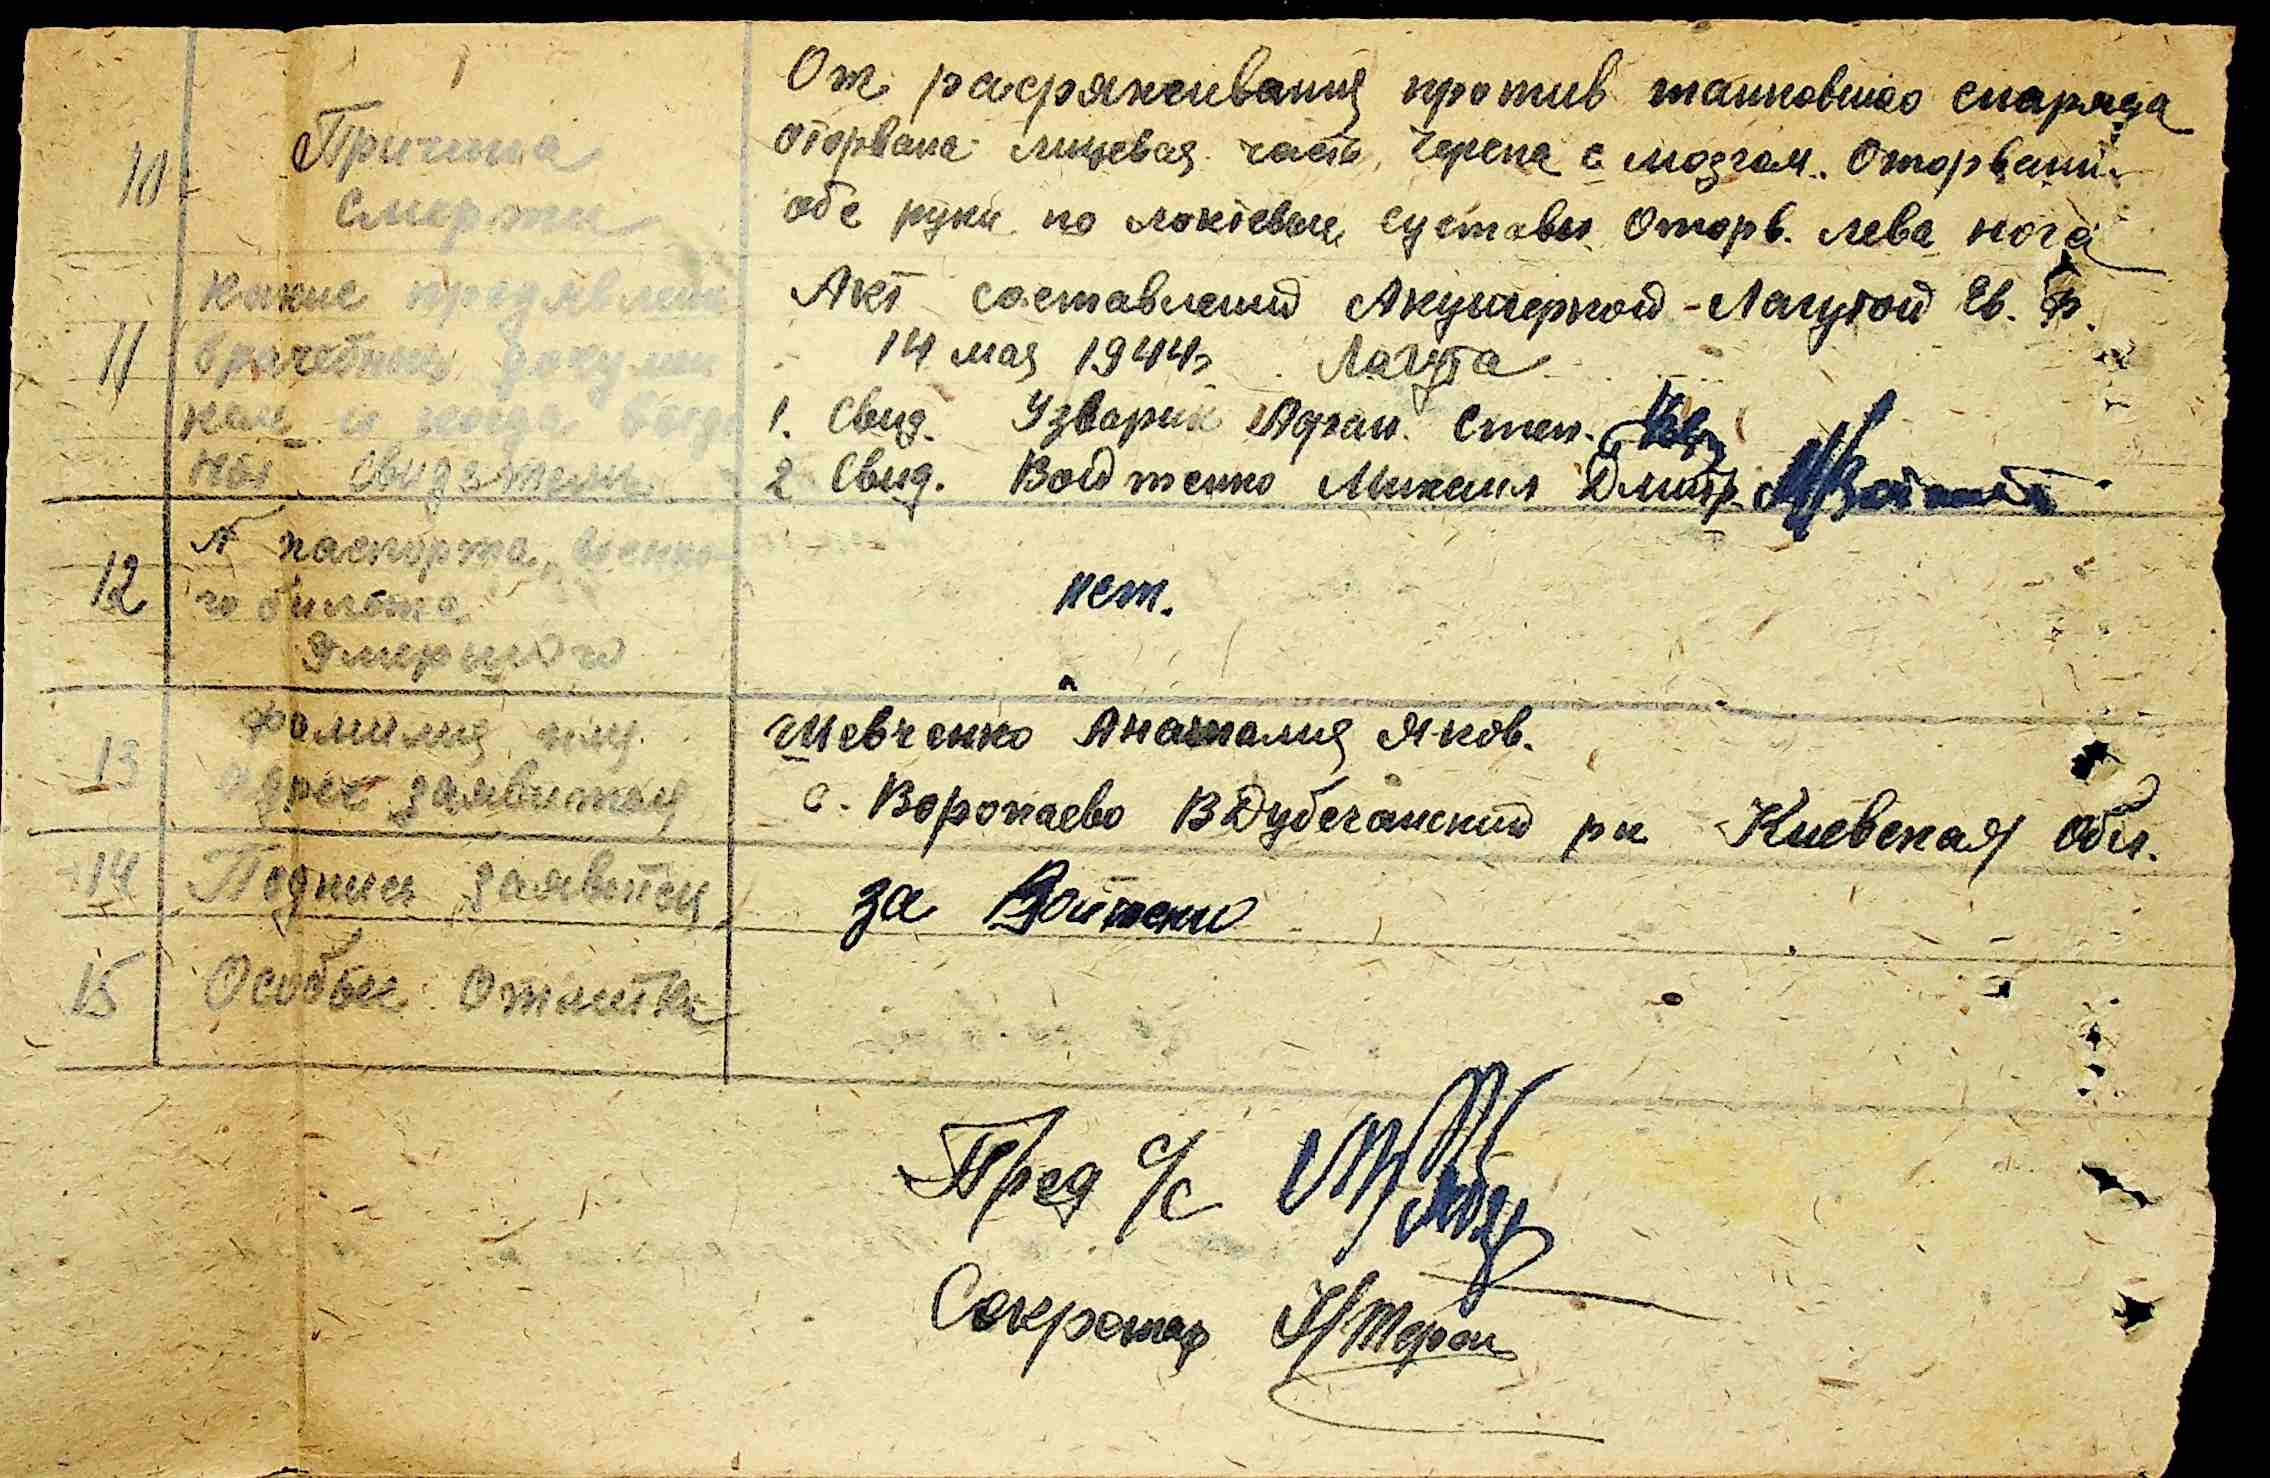 10 Причина смерти
От расряжеивания против танковшао снаряда
оторвана лицевая часть черепа с мозгом. Оторвани
обе руки по локтевые суставы Оторв. лева нога
11 Какие предявлени
врачебные докумен
кем и когда выда
ны свидетели
Акт составлений Акушеркой - Лагутой Ев. Ф.
14 мая 1944г Лагута
1. Свид. Узварик Адган. Степ.
2 Свид. Войтенко Михаил Дмитр. МВойтен
12 № паспорта, военно
го билета
Умершого
нет.
13 Фамилия имя
адрес заявителя
Шевченко Анаталия Яков.
с. Воропаево ВДубечанский рн Киевская обл.
14 Подпись заявител
за Войтенко
15 Особые отметки
Пред с/с
Секретар